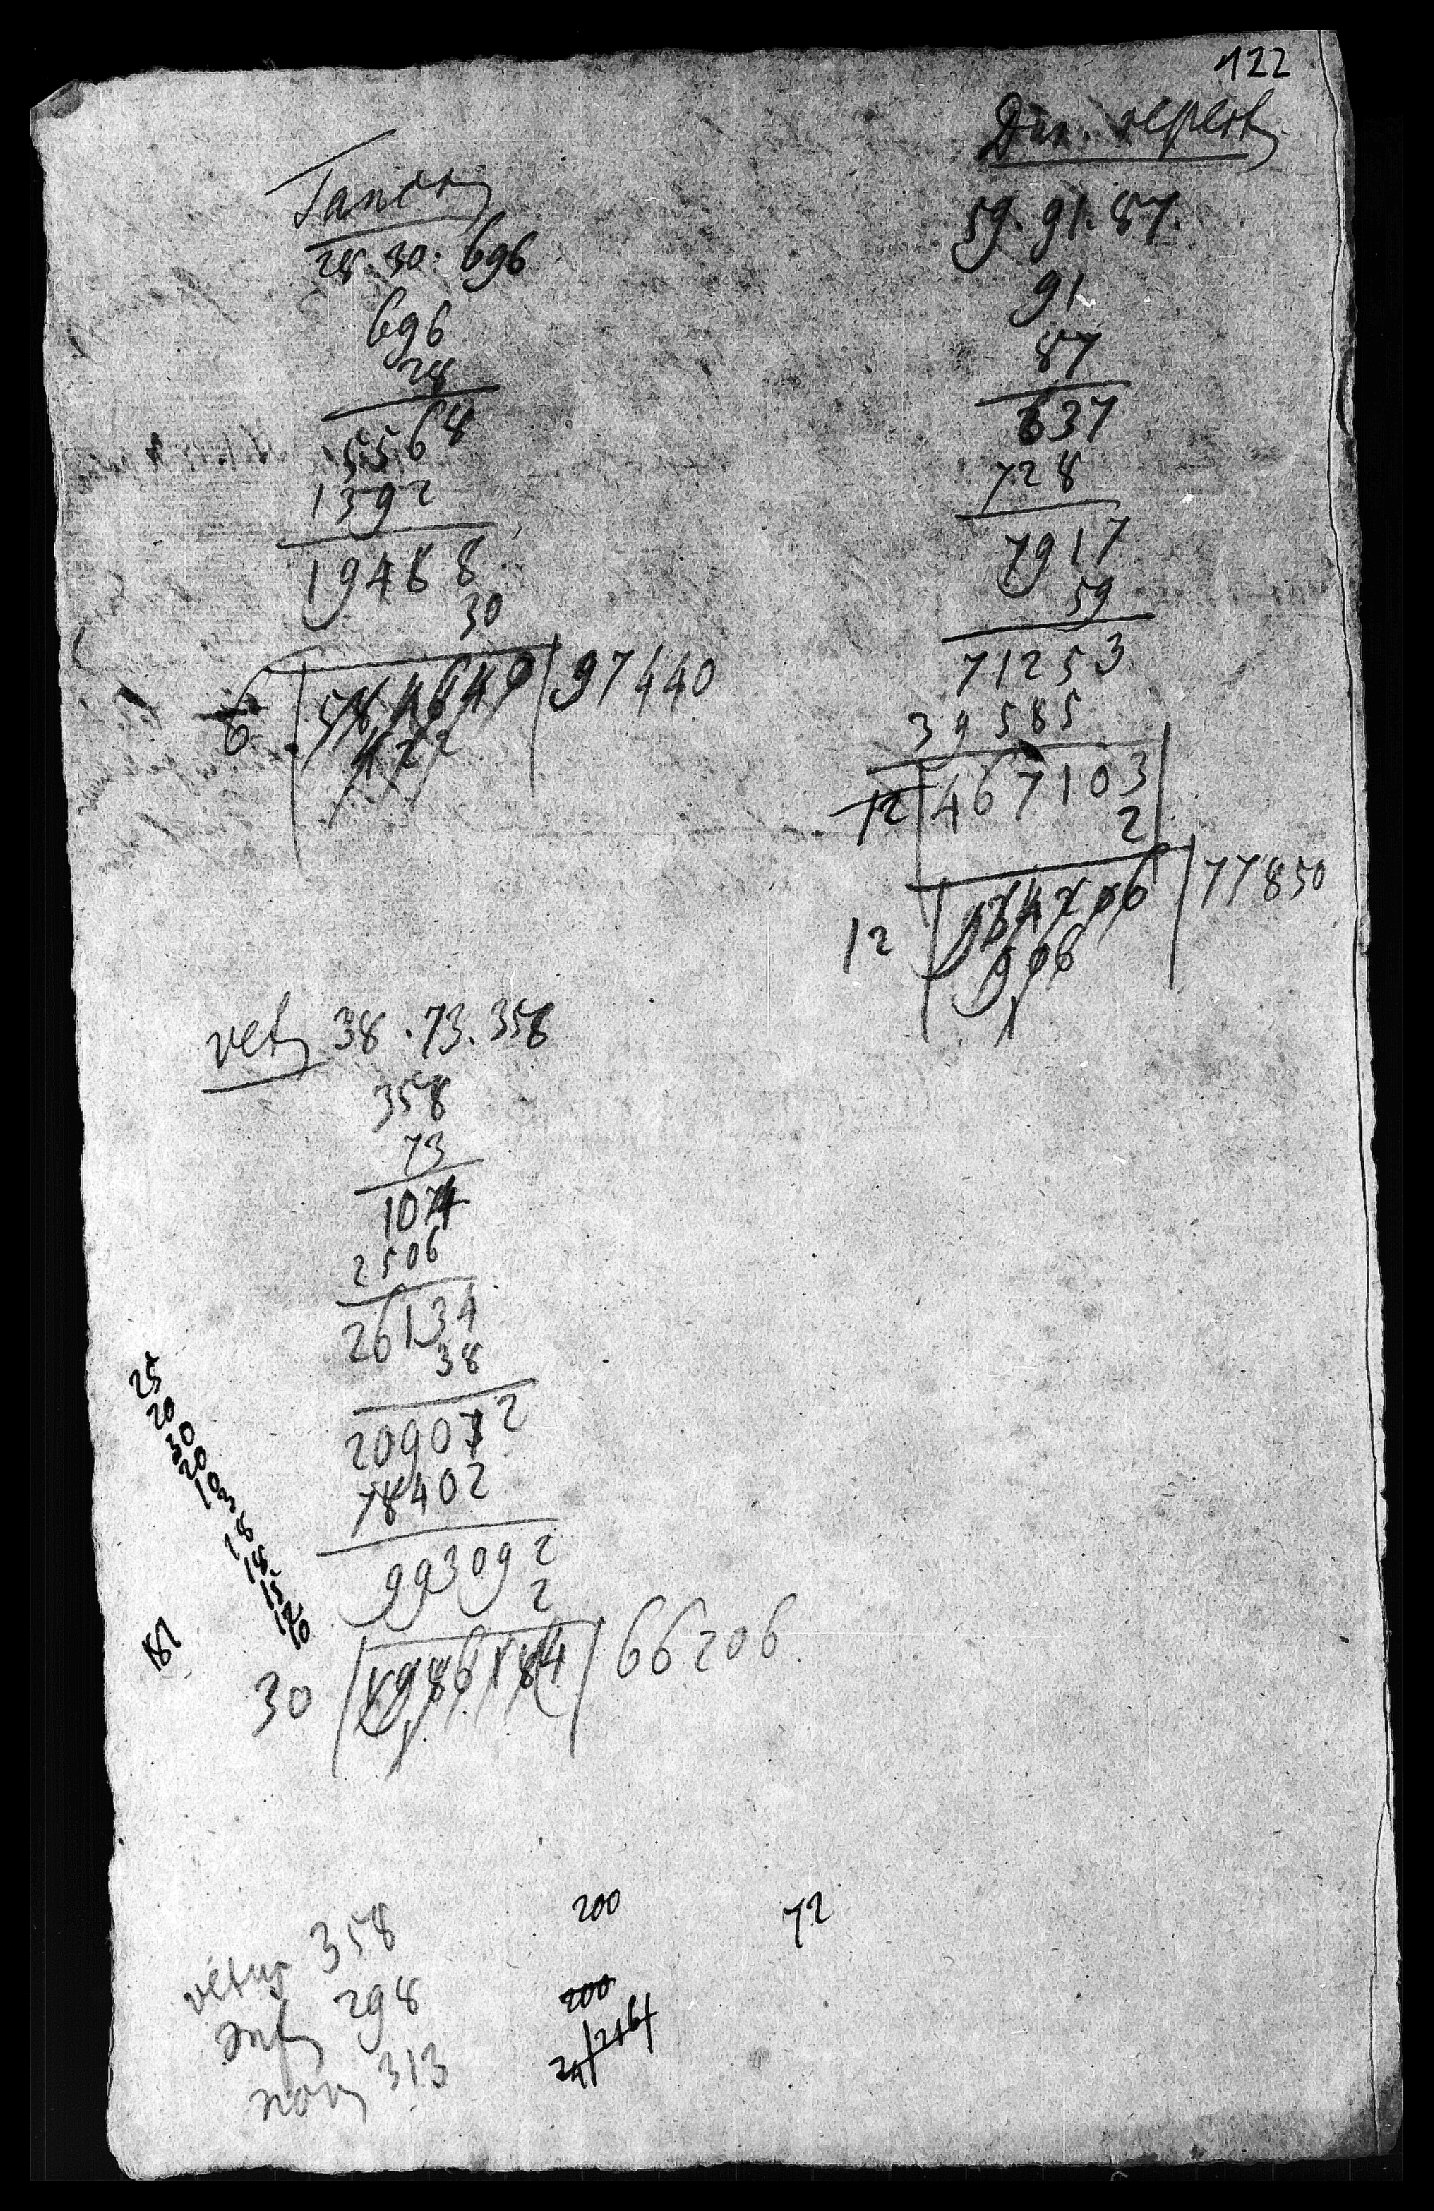 122
28. 30. 696
696
28
5568
1392
19488
30
6 | 584640 | 97440
422
59. 91. 87.
91
87
637
728
7917
59
71253
39585
12 | 467103
2
12 | 934206 | 77850
906
38. 73. 358
358
73
1074
2506
26134
38
209072
78402
993092
2
30 | 1986184 | 66206
25
20
30
20
10
3
18
15
12
10
181
vetus 358
298
nov 313
200
72
200
24 | 216 |